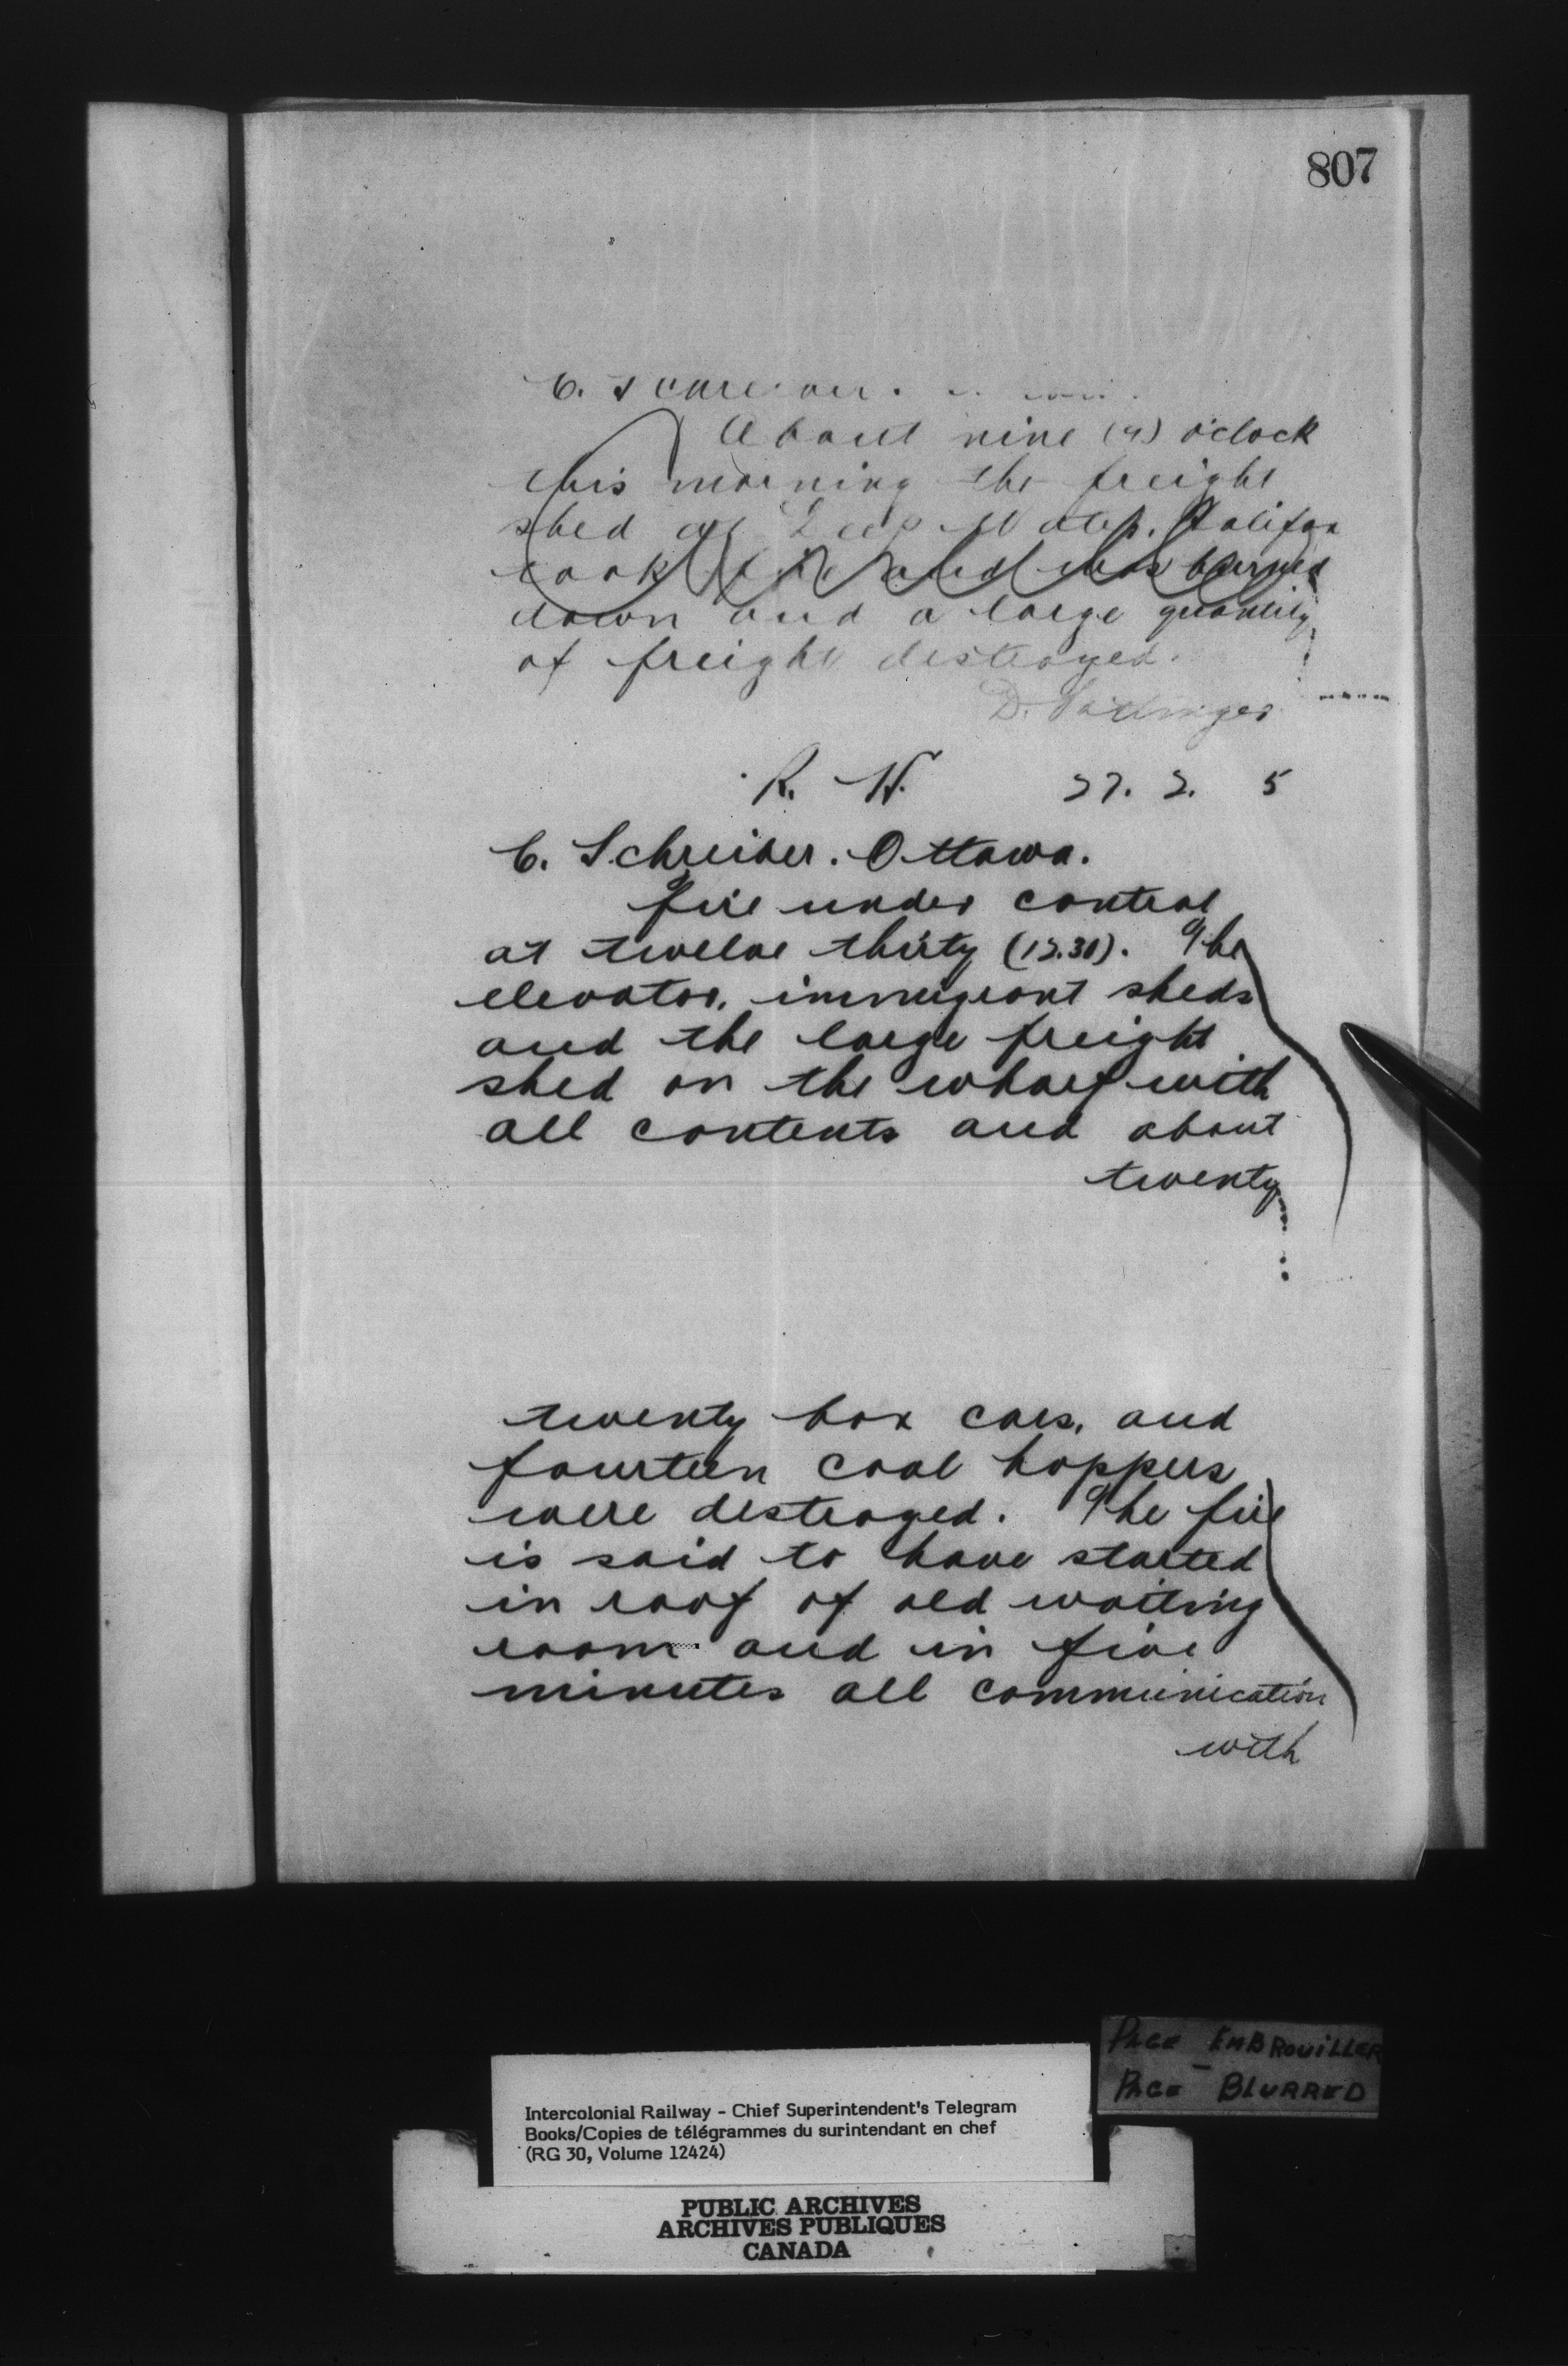 807
C. Schreiber.
About nine (9) o'clock
this morning the freight
shed at Deep Water, Halifax
took fire and was burned
down and a large quantity
of freight destroyed.
D. Pottinger
R. H. 27. 2. 5
C. Schreiber. Ottawa.
Fire under control
at twelve thirty (12.30). The
elevator, immigrant sheds
and the large freight
shed on the wharf with
all contents and about
twenty
twenty box cars, and
fourteen coal hoppers
were destroyed. The fire
is said to have started
in roof of old waiting
room and in five
minutes all communication
with
PAGE EMBROUILLER
PAGE - BLURRED
Intercolonial Railway - Chief Superintendent's Telegram
Books/Copies de télégrammes du surintendant en chef
(RG 30, Volume 12424)
PUBLIC ARCHIVES
ARCHIVES PUBLIQUES
CANADA